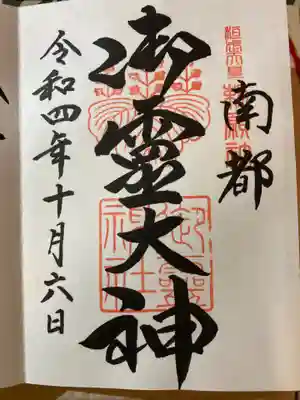 南都
御靈大神
令和四年十月六日
御靈神社